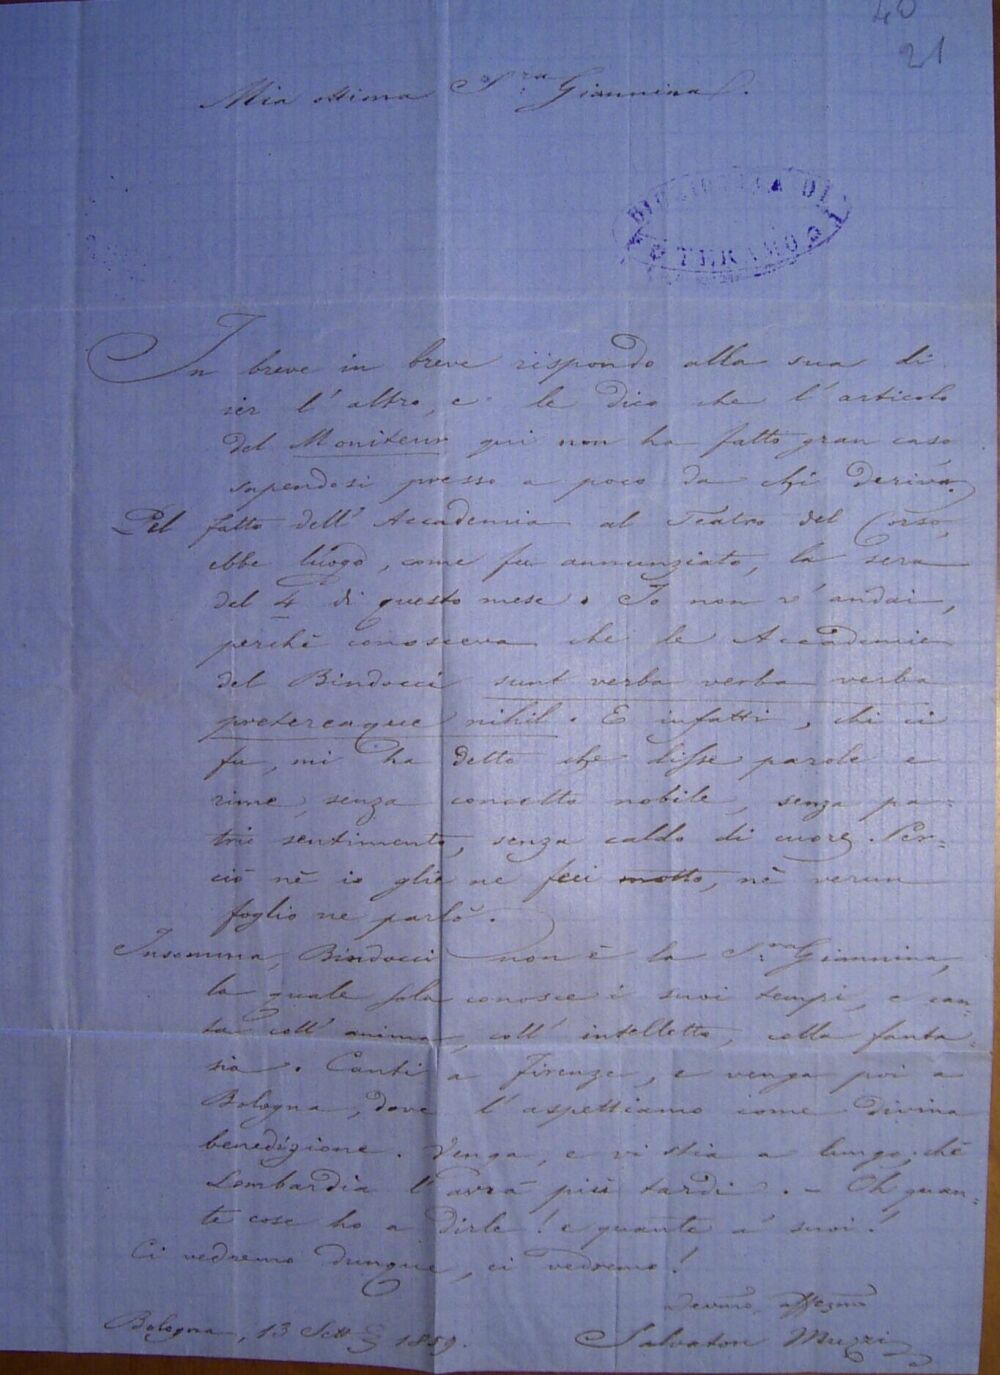 40
21
Mia ottima S.ra Giannina.
BIBLIOTECA DI
TERAMO
In breve in breve rispondo alla sua di
ier l'altro, e le dico che l'articolo
del Moniteur qui non ha fatto gran caso,
sapendosi presso a poco da chi deriva.
Pel fatto dell'Accademia al Teatro del Corso,
ebbe luogo, come fu annunziato, la sera
del 4 di questo mese. Io non v'andai,
perchè conosceva che le Accademie
del Bindocci sunt verba verba verba
pretereaque nihil. E infatti, chi ci
fu, mi ha detto che disse parole e
rime, senza concetto nobile, senza pa-
trio sentimento, senza caldo di cuore. Per-
ciò nè io gliene feci motto, nè verun
foglio ne parlò.
Insomma, Bindocci non è la S.ra Giannina,
la quale sola conosce i suoi tempi, e can-
ta coll'anima, coll'intelletto, colla fanta-
sia. Canti a Firenze, e venga poi a
Bologna, dove l'aspettiamo come divina
benedizione. Venga, e vi stia a lungo, chè
Lombardia l'avrà più tardi. - Oh quan-
te cose ho a dirle! e quante a' suoi!
Ci vedremo dunque, ci vedremo!
Devmo, affezmo
Bologna, 13 Sett.e 1859.
Salvator Muzzi